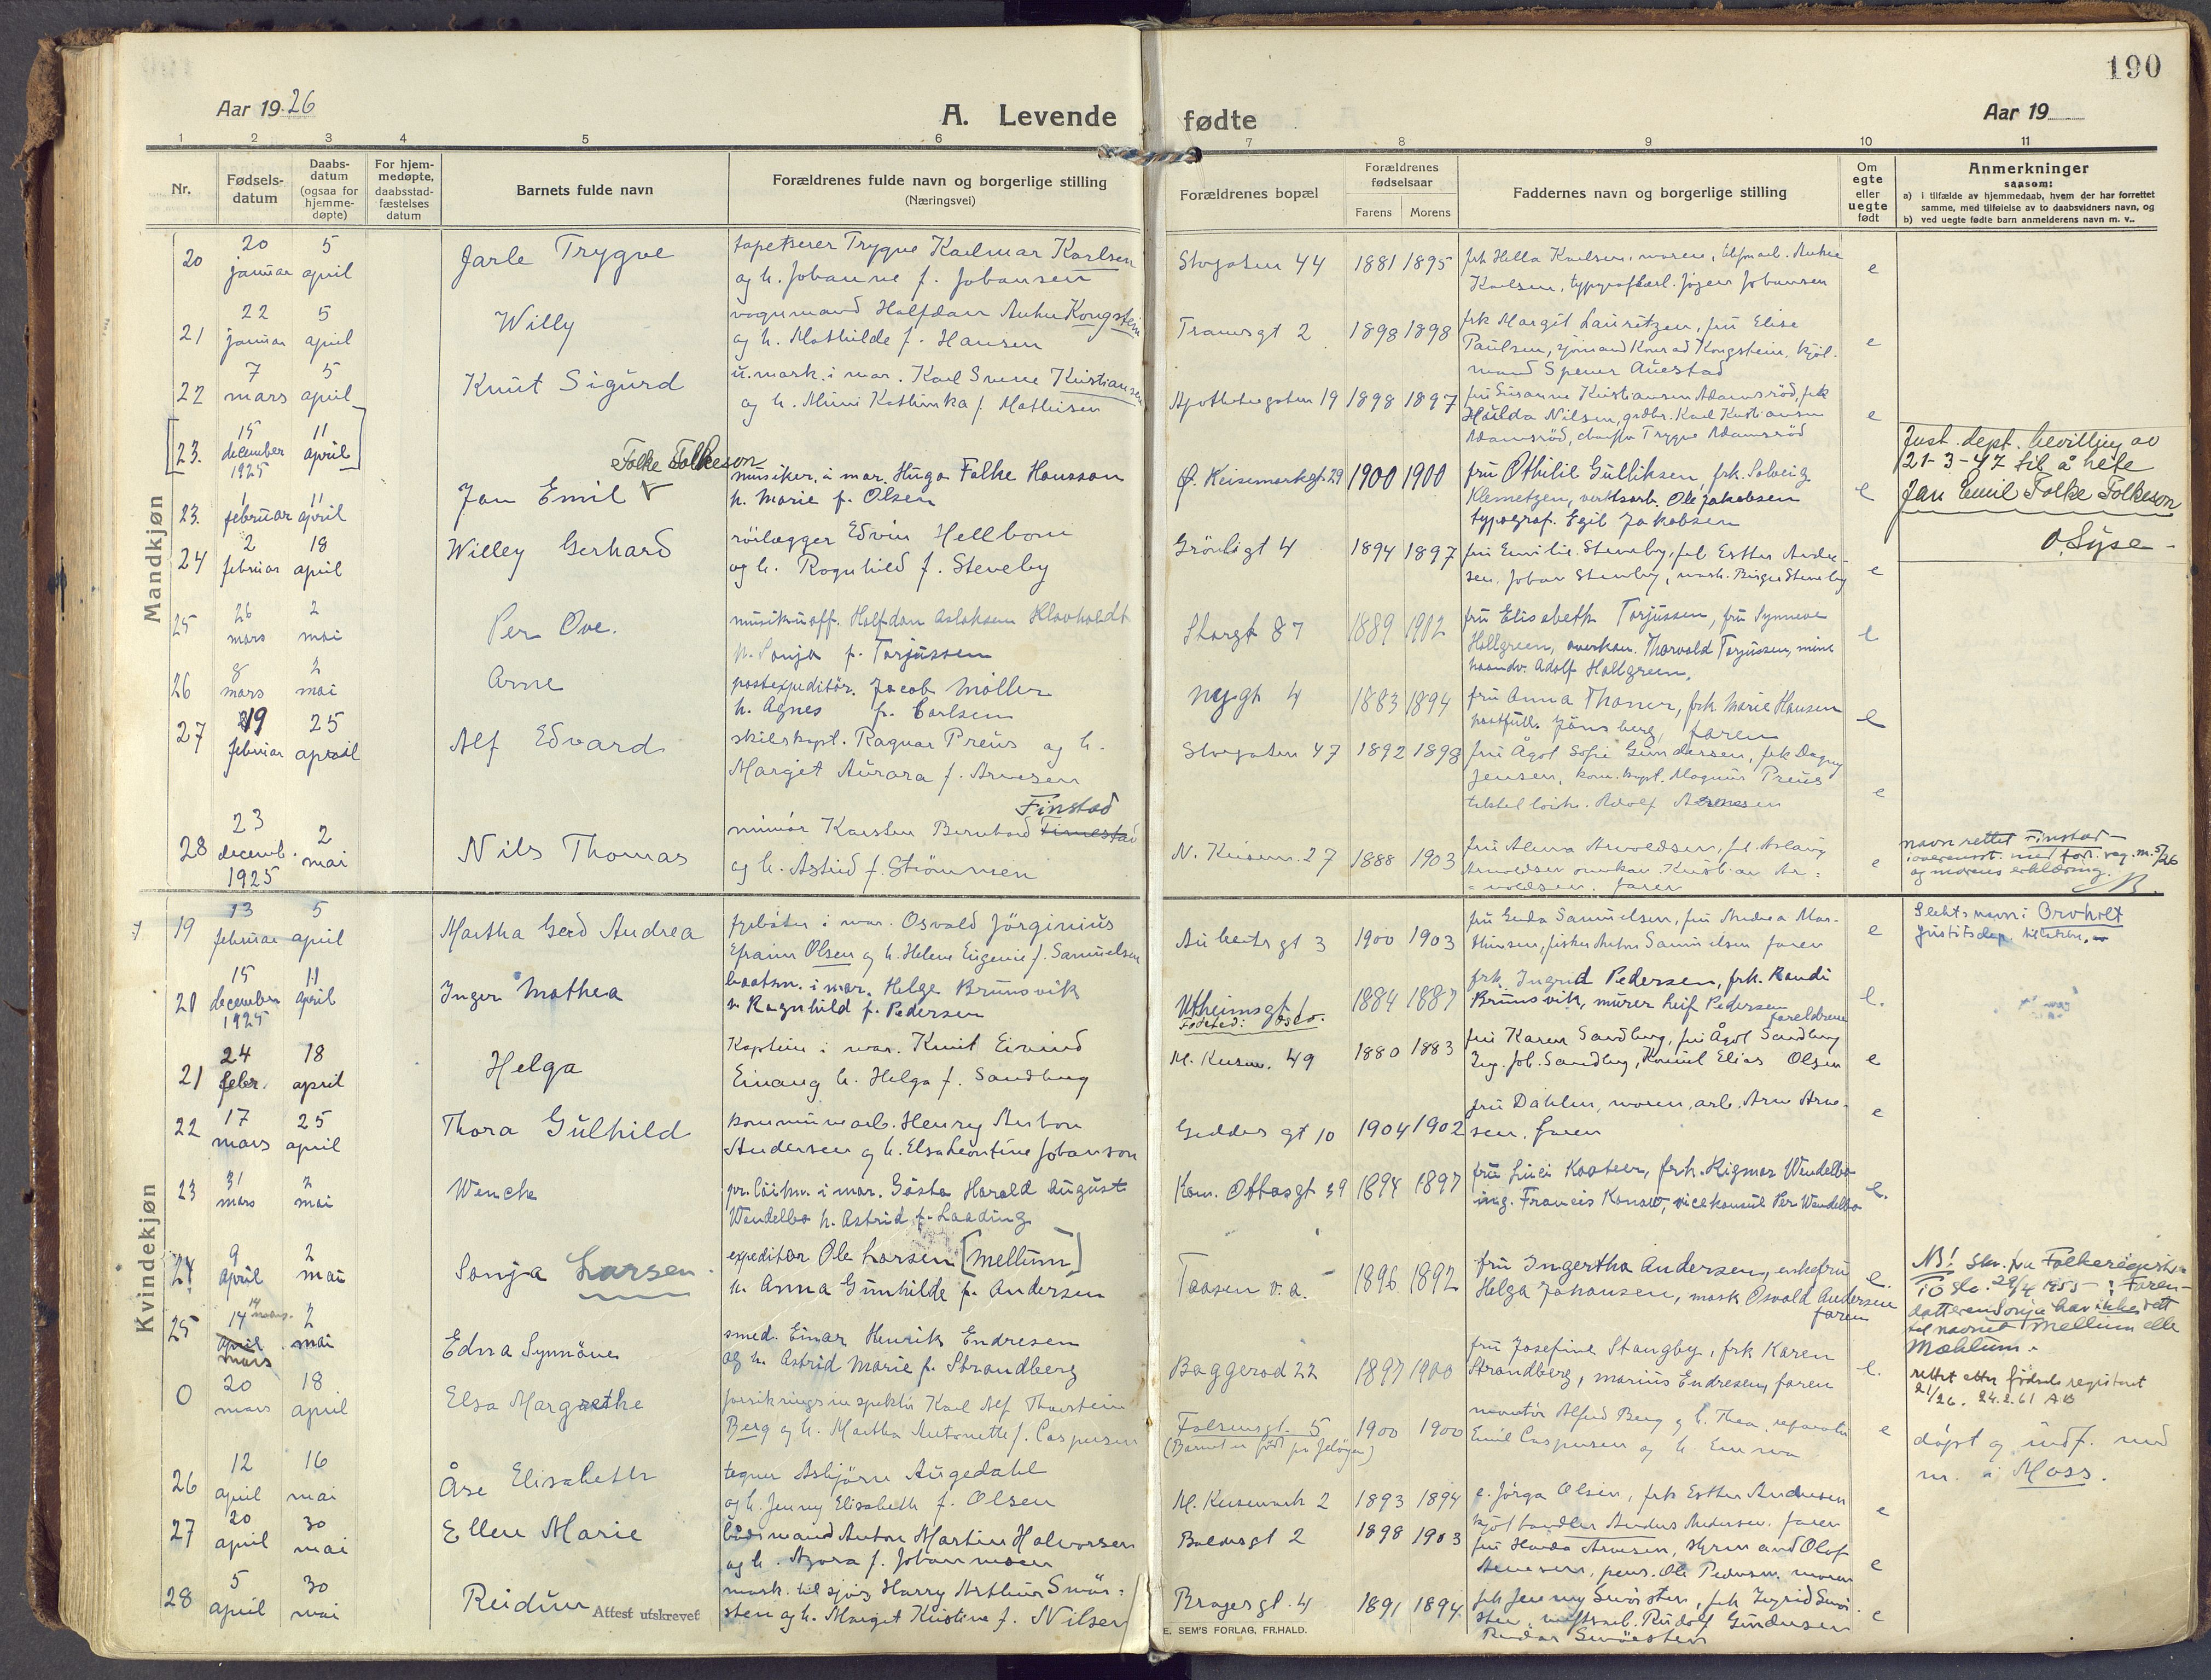 190
Aar 1926
A. Levende fødte
Aar 19
1 2 3 4 5 6 7 8 9 10 11
Nr.
Fødsels-
datum
Daabs-
datum
(ogsaa for
hjemme-
døpte)
For hjem-
medøpte,
daabsstad-
fæstelses
datum
Barnets fulde navn
Forældrenes fulde navn og borgerlige stilling
(Næringsvei)
Forældrenes bopæl
Forældrenes
fødselsaar
Farens Morens
Faddernes navn og borgerlige stilling
Om
egte
eller
uegte
født
Anmerkninger
saasom:
a) i tilfælde av hjemmedaab, hvem der har forrettet
samme, med tilføielse av to daabsvidners navn, og
b) ved uegte fødte barn anmelderens navn m. v..
Mandkjøn
20
20 januar
5 april
Jarle Trygve
tapetserer Trygve Karlmar Karlsen
og h. Johanne f. Johansen
Storgaten 44
1881 1895
Karlsen, typograf Jörgen Johansen
e
21
22 januar
5 april
Willy
vognmand Halfdan Anker Kongstein
og h. Mathilde f. Hansen
Tranesgt 2
1898 1898
frk Margit Lauritzen, fru Elise
Paulsen, sjömand Konrad Kongstein, kjöl-
mand Auestad
e
22
7 mars
5 april
Knut Sigurd
u.mask. i mar. Karl Sverre Kristiansen
og h. Mimi Kathinka f. Mathisen
Apothekergaten 19
1898 1897
fru Susanne Kristiansen Adamsröd, frk
Haulda Nilsen, grdbr. Karl Kristiansen
Adamsröd, Trygve Adamsröd
e
[23.
15 december 1925
11 april]
Folke Folkeson
Jan Emil
musiker i mar. Hugo Falke Hansson
h. Marie f. Olsen
Ø. Keisemarkgt. 29
1900 1900
fru Othilie Gulliksen, frk. Solveig
Klemetzen, verkstarb. Ole Jakobsen
typograf. Egil Jakobsen
e
Just. dept. bevilling av
21-3-47 til å hete
Jan Emil Folke Folkeson
O. Syse
23.
1 februar
11 april
Willey Gerhard
rörlægger Edvin Hellbom
og h. Ragnhild f. Steneby
Grönligt 4
1894 1897
fru Emilie Steneby, frk Esther Ander-
sen, Johan Steneby, mask. Birger Steneby
e
24
2 februar
18 april
25
26 mars
2 mai
Per Ove.
musikuoff. Halfdan Aslaksen Klovholdt
h. Sonja f. Torjussen
Storgt 87
1889 1902
fru Elisabeth Torjussen, fru Synneve
Hallgreen, overkan. Thorvald Torjussen, mine
haandv. Adolf Hallgreen.
e
26
8 mars
2 mai
Arne
postexpeditör. Jacob Möller
h. Agnes f. Carlsen
Nygt 4
1883 1894
fru Anna Thaner, frk Marie Hansen
postfullm. Jönsberg, faren
e
27
19 februar
25 april
Alf Edvard
skibskapt. Ragnar Preus og h.
Margit Aurora f. Arnesen
Storgaten 47
1892 1898
fru Ågot Sofie Gundersen, frk Dagny
Jensen, kom. kapt. Magnus Preus
Adolf Arnesen
e
28
23 decemb. 1925
2 mai
Nils Thomas
Finstad
minör Karsten Bernhard Finnestad
og h. Astrid f. Strömmen
N. Keisem. 27
1888 1903
fru Alma Arnoldsen, frk. Aslaug
Arnoldsen, ømkar. Kristian Ar=
=noldsen. faren
e
navn rettet Finstad —
i overensst. med föd. reg. m. 5/26
og morens erklæring.
Kvindekjøn
19
13 februar
5 april
Martha Gerd Andrea
fyrböter i mar. Osvald Jörginius
Efraim Olsen og h. Helene Eugenie f. Samuelsen
Aubertsgt 3
1900 1903
fru Gerda Samuelsen, fru Andrea Mar-
thinsen, fisker Anton Samuelsen faren
e
Slektsnavn: Orvholt
Justitsdep. tillatelse.
20
15 december 1925
11 april
Inger Mathea
baatsm. i mar. Helge Brunsvik
h. Ragnhild f. Pedersen
Utheimsgt 1
Födested: Oslo.
1884 1887
frk. Ingrid Pedersen, frk. Randi
Brunsvik, murer Leif Pedersen
foreldrene
e.
21
24 febr.
18 april
Helga
Kaptein i mar. Knut Eivind
Einang h. Helga f. Sandberg
M. Keisem. 49
1880 1883
fru Karen Sandberg, fru Ågot Sandberg
Ing. Joh. Sandberg, Konsul Elias Olsen
e
22
17 mars
25 april
Thora Gulhild
kommunearb. Henry Anton
Andersen og h. Elsa Leontine Johanson
Geddes gt 10
1904 1902
fru Dahlen, moren, arb. Arne Arne-
sen. faren
e
23
31 mars
2 mai
Wencke
pr. löitn. i mar. Gösta Harald August
Wendelbo h. Astrid f. Laading
Kom. Ottosgt 39
1894 1897
fru Luci Kaateen, frk. Rigmor Wendelbo
ing. Francis Konow, vicekonsul Per Wendelbo
e.
24
9 april
2 mai
Sonja Larsen
expeditör Ole Larsen [Mellum]
h. Anna Gunhilde f. Andersen
Taasen v. a.
1896 1892
fru Ingertha Andersen, enkefru
Helga Johansen, mask Osvald Andersen
faren
e.
NB! Skr. fra Folkeregist.
i Oslo 29/4 1955: Faren-
datteren Sonja har ikke rett
til navnet Mellum eller
Mæhlum.
25
14 mars.
april
mars
2 mai
Edna Synnöve
smed. Einar Henrik Endresen
og h. Astrid Marie f. Strandberg
Baggerød 22
1897 1900
fru Josefine Stangby, frk Karen
Strandberg, Marius Endresen, faren
e.
rettet etter födselsregisteret
21/26. 24.2.61 AB
0
20 mars
18 april
Elsa Margrethe
forsikringsinspektör Karl Alf Thorstein
Berg og h. Martha Antonette f. Caspersen
Falsensgt. 5
(Barnet er född på Jelöya)
1900 1900
montör Alfred Berg og h. Thea, reparatör
Emil Caspersen og h. Emma
e
döpt og indf. med
nr. i Moss.
26
12 april
16 mai
Åse Elisabeth
tegner Asbjörn Augedahl
og h. Jenny Elisabeth f. Olsen
M. Keisemark 2
1893 1894
e. Jörga Olsen, frk Esther Andresen
kjöthandler Anders Andersen. faren
e
27
20 april
30 mai
Ellen Marie
Anton Martin Halvorsen
og h. Azora f. Johannesen
Baldersgt 2
1898 1903
fru Hulda Arnesen, styrmand Olof
Arnesen, pens. Ole Pedersen. moren
e
28
5 april
30 mai
Reidun
Attest utskrevet
mask. til sjös Harry Arthur Smör=
sten og h. Margit Kristine f. Nilsen
Bragesgt. 4
1891 1894
frk Jenny Smörsten, frk Ingrid Smör-
sten, Rudolf Gundersen
Reidar Smörsten
e
E. SEM'S FORLAG, FR.HALD.